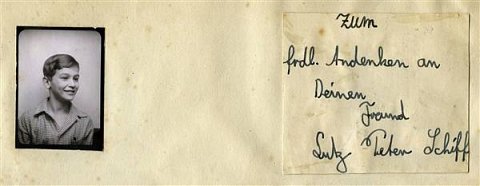 Zum
frdl. Andenken an
Deinen
Freund
Lutz Peter Schiff